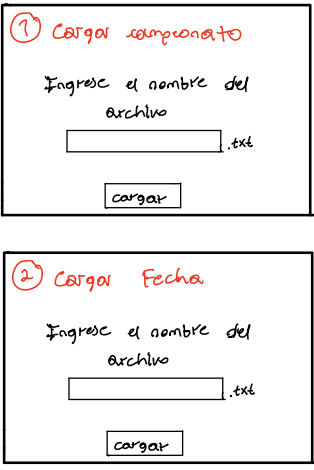 1 Cargar campeonato
Ingrese el nombre del
archivo
.txt
cargar
2 Cargar Fecha
Ingrese el nombre del
archivo
.txt
cargar